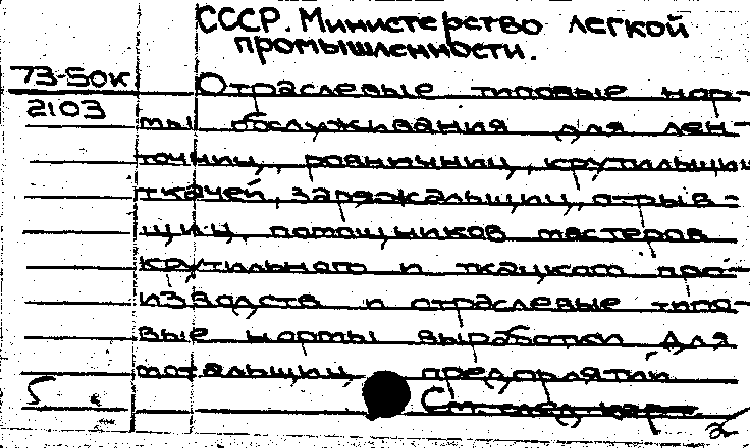 СССР. Министерство легкой
промышленности.
73-50к
2103
Отраслевые типовые нор-
мы обслуживания для лен-
точниц, ровничниц, крутильщиц
ткачей, заряжальщиц, отрыв-
щиц, помощников мастеров
крутильного и ткацкого про-
изводств и отраслевые типо-
вые нормы выработки для
мотальщиц предприятий
5
См. след карт